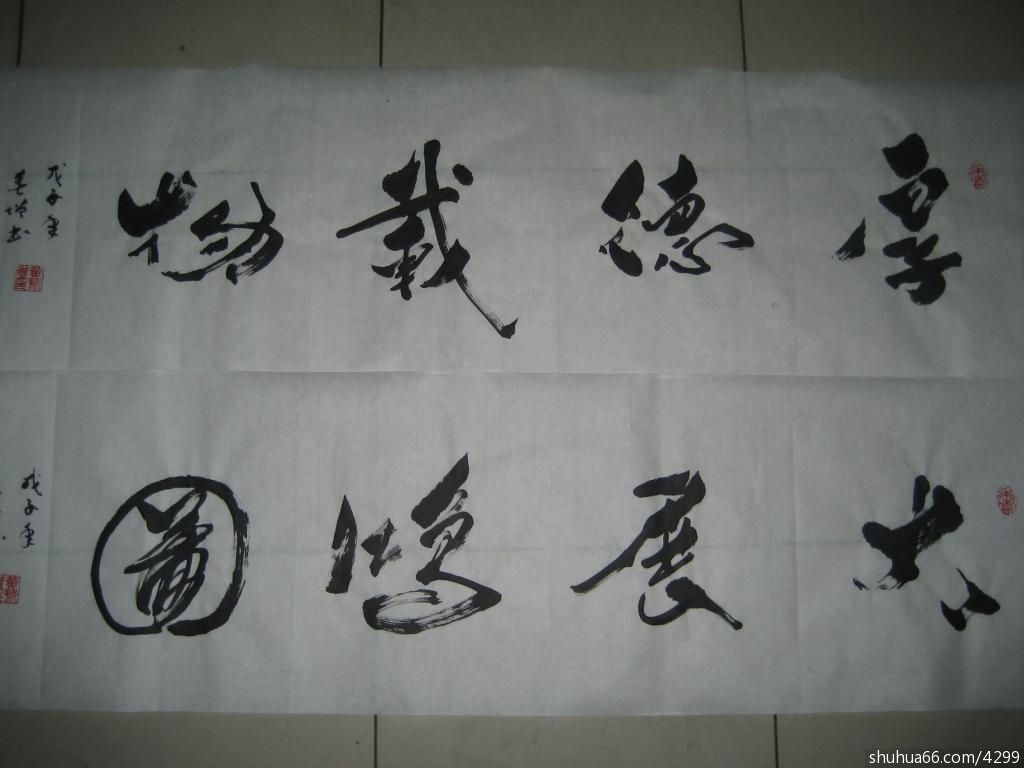 厚德載物
戊子年
春增书
大展鴻圖
戊子年
shuhua66.com/4299